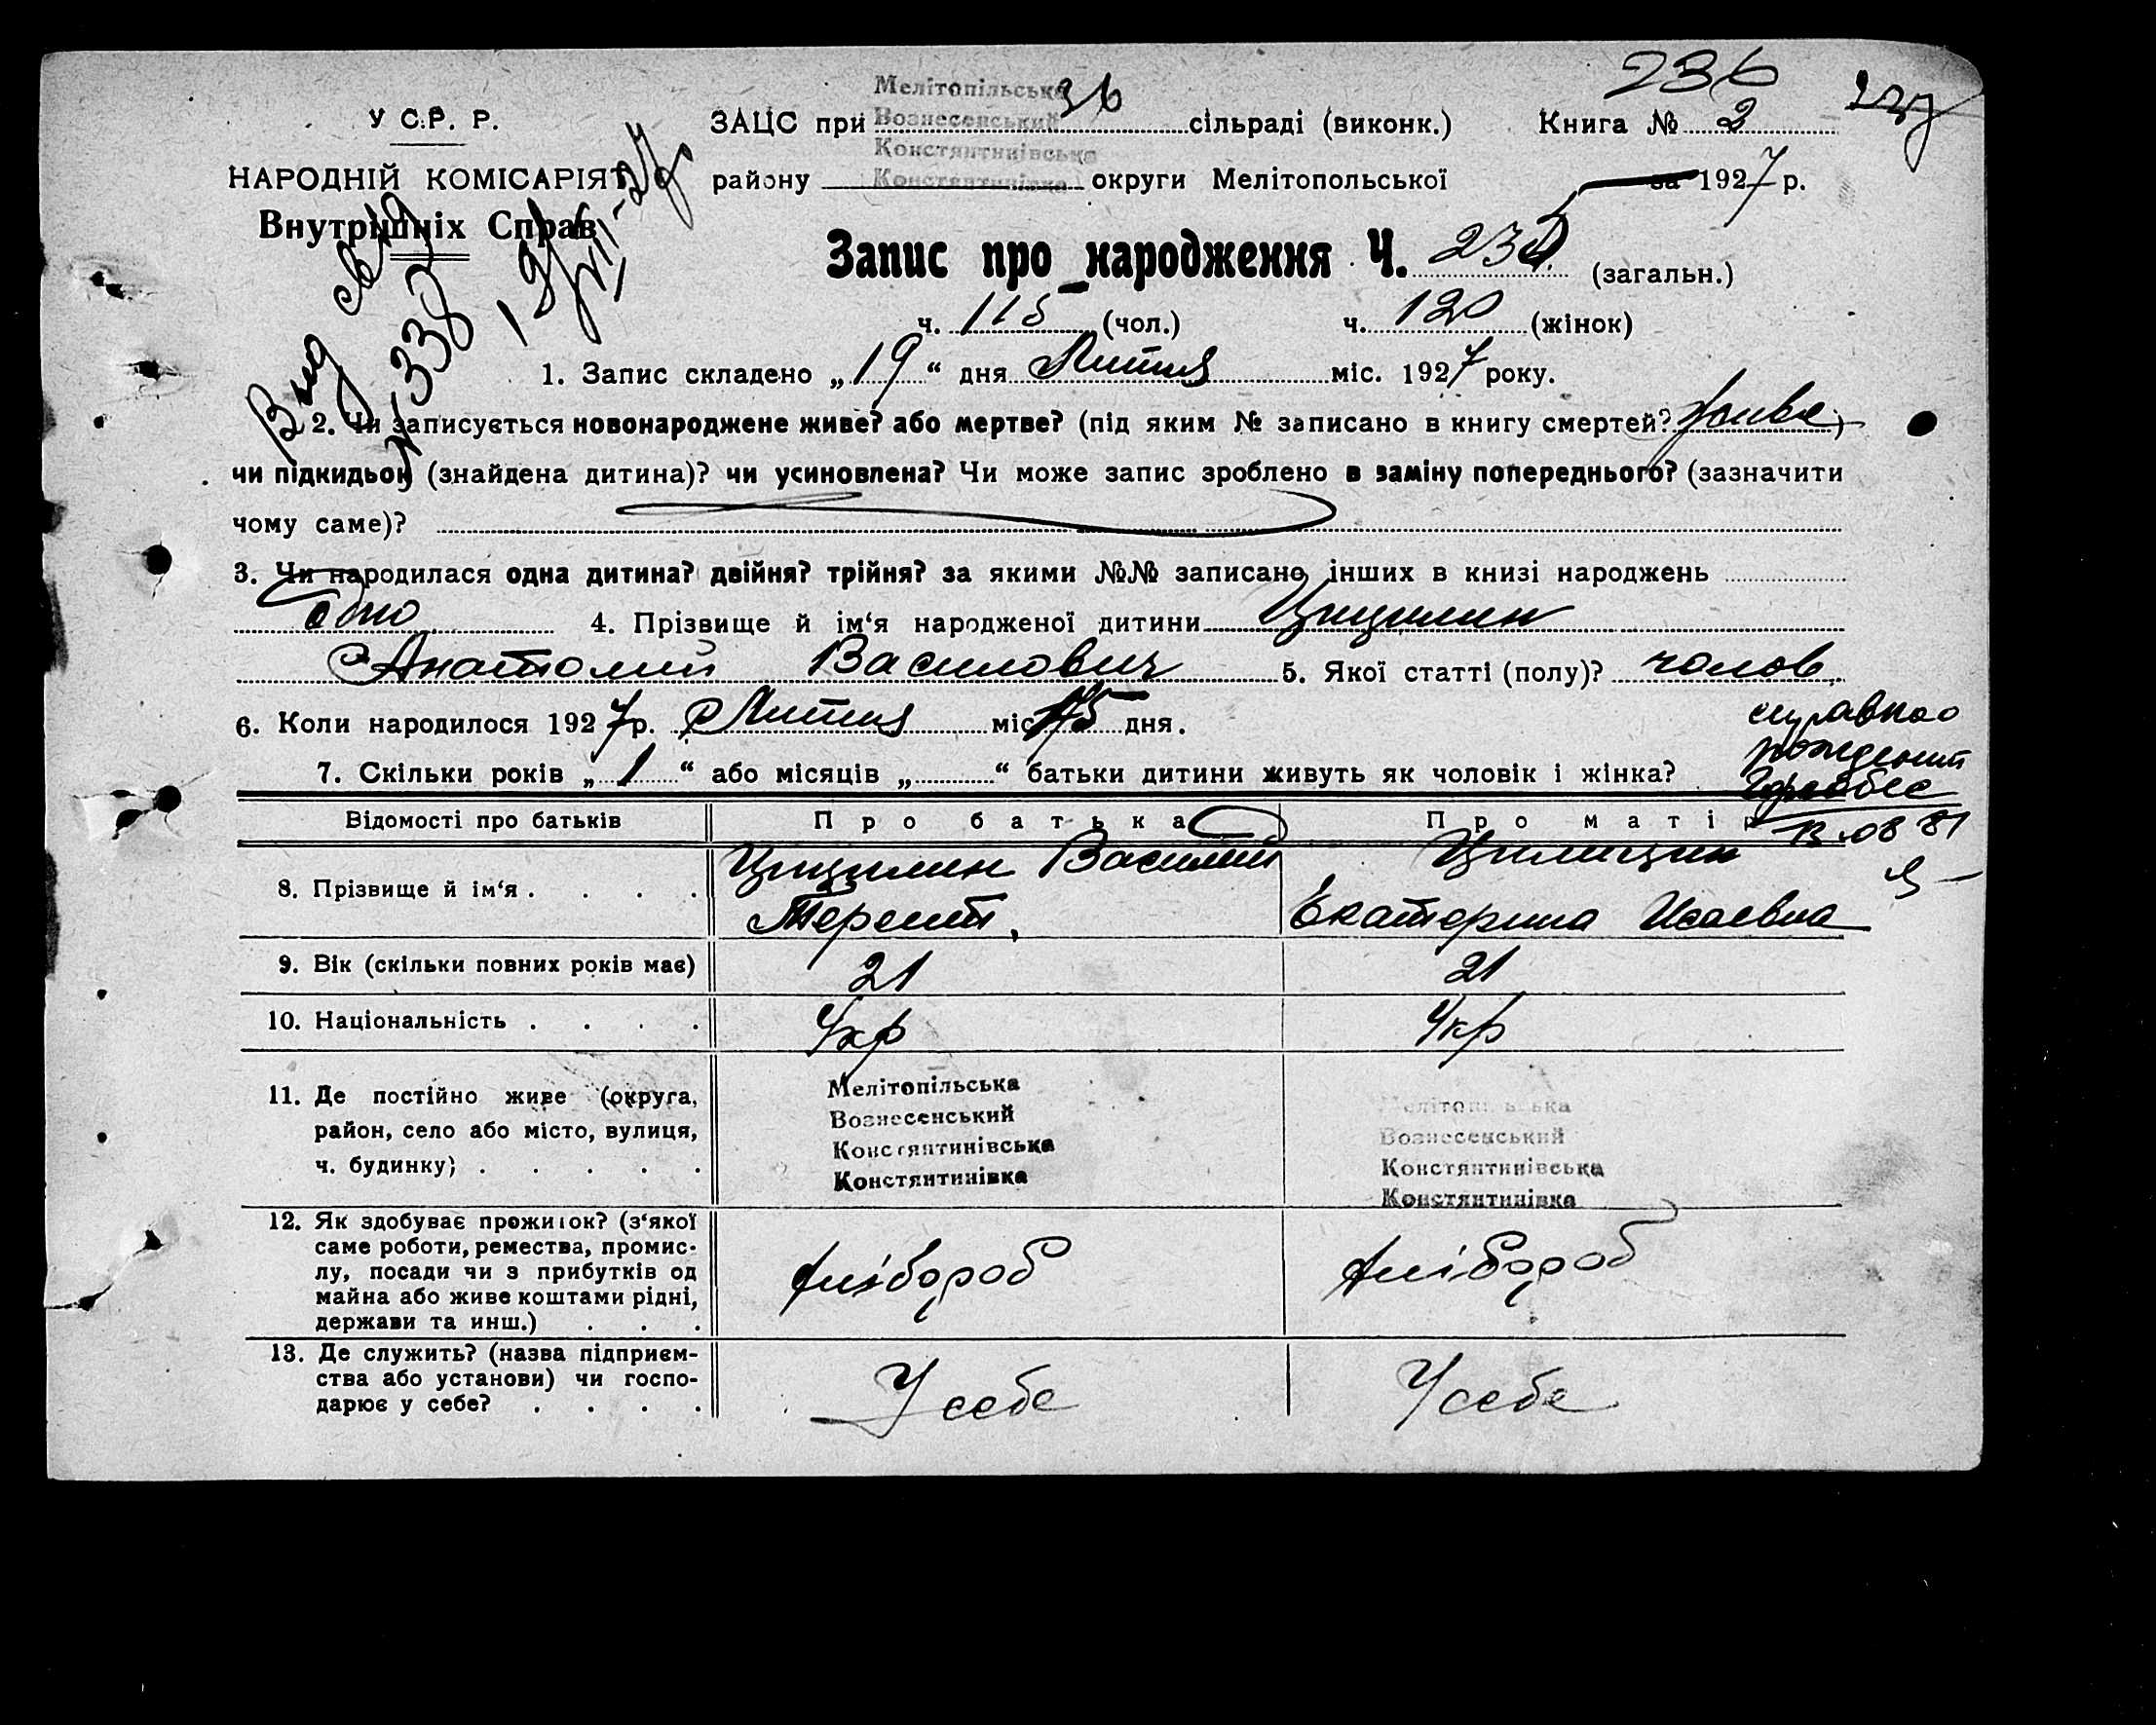 236
Мелітопільська 36
У С.Р. Р. ЗАЦС при Вознесенський сільраді (виконк.) Книга № 2
Констянтинівська
НАРОДНІЙ КОМІСАРІЯТ району Констянтинівка округи Мелітопольської за 1927 р.
Внутрішніх Справ
Запис про народження Ч. (загальн.)
ч. 115 (чол.) ч. 120 (жінок)
1. Запис складено „19“ дня Липня міс. 1927 року.
2. Чи записується новонароджене живе? або мертве? (під яким № записано в книгу смертей? живе)
чи підкидьок (знайдена дитина)? чи усиновлена? Чи може запис зроблено в заміну попереднього? (зазначити
чому саме)?
3. Чи народилася одна дитина? двійня? трійня? за якими №№ записано інших в книзі народжень
одно 4. Прізвище й ім‘я народженої дитини Цицилин
Анатолий Василович 5. Якої статті (полу)? чолов.
6. Коли народилося 1927 р. Липня міс 15 дня.
справка о
рождении
7. Скільки років „1“ або місяців „ “ батьки дитини живуть як чоловік і жінка?
Відомості про батьків Про батька Про матір
13.08 81
8. Прізвище й ім‘я . . . . Цицилин Василий Цилицин
Терент. Екатерина Исаевна
9. Вік (скільки повних років має) 21 21
10. Національність . . . . Укр Укр
11. Де постійно живе (округа, район, село або місто, вулиця, ч. будинку) . . . . .
Мелітопільська Мелітопільська
Вознесенський Вознесенський
Констянтинівська Констянтинівська
Констянтинівка Констянтинівка
12. Як здобуває прожиток? (з‘якої
саме роботи, ремества, промис-
лу, посади чи з прибутків од
майна або живе коштами рідні,
держави та инш.) . . .
хлібороб хлібороб
13. Де служить? (назва підприєм-
ства або установи) чи госпо-
дарює у себе? . . . .
У себе У себе